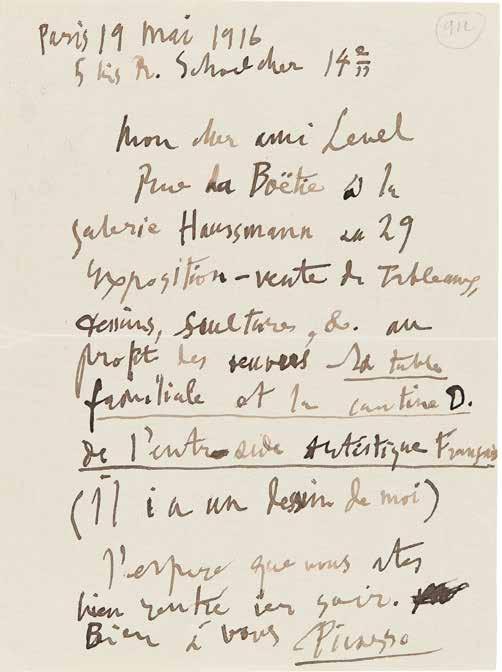 912
Paris 19 Mai 1916
5 bis R. Schoelcher 14e
Mon cher ami Level
Rue La Boëtie à la
galerie Haussmann au 29
exposition-vente de Tableaux,
dessins, scultures, &. au
profit des euvres La table
familiale et la cantine D.
de l'entr aide Artistique Français
(Il i a un dessin de moi)
J'espere que vous etes
bien rentre ier soir.
Bien à vous Picasso